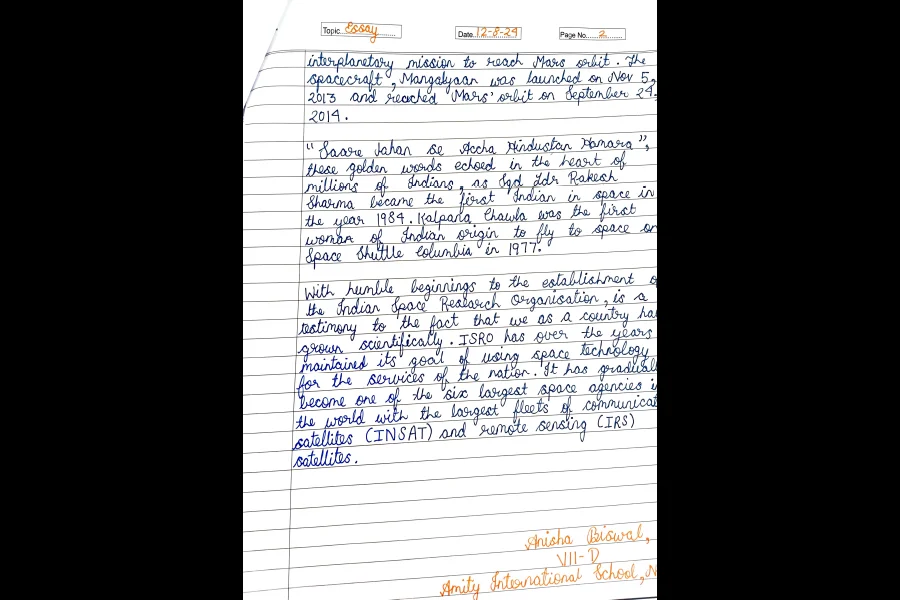 Topic Essay Date 12-8-24 Page No. 2
interplanetary mission to reach Mars orbit. The
spacecraft, Mangalyaan was launched on Nov 5,
2013 and reached Mars' orbit on September 24,
2014.
"Saare Jahan se Accha Hindustan Hamara",
these golden words echoed in the heart of
millions of Indians, as Sqd Ldr Rakesh
Sharma became the first Indian in space in
the year 1984. Kalpana Chawla was the first
woman of Indian origin to fly to space on
Space Shuttle Columbia in 1977.
With humble beginnings to the establishment o
the Indian Space Research Organisation, is a
testimony to the fact that we as a country ha
grown scientifically. ISRO has over the years
maintained its goal of using space technology
for the services of the nation. It has gradual
become one of the six largest space agencies i
the world with the largest fleets of communicat
satellites (INSAT) and remote sensing (IRS)
satellites.
Anisha Biswal,
VII-D
Amity International School, N